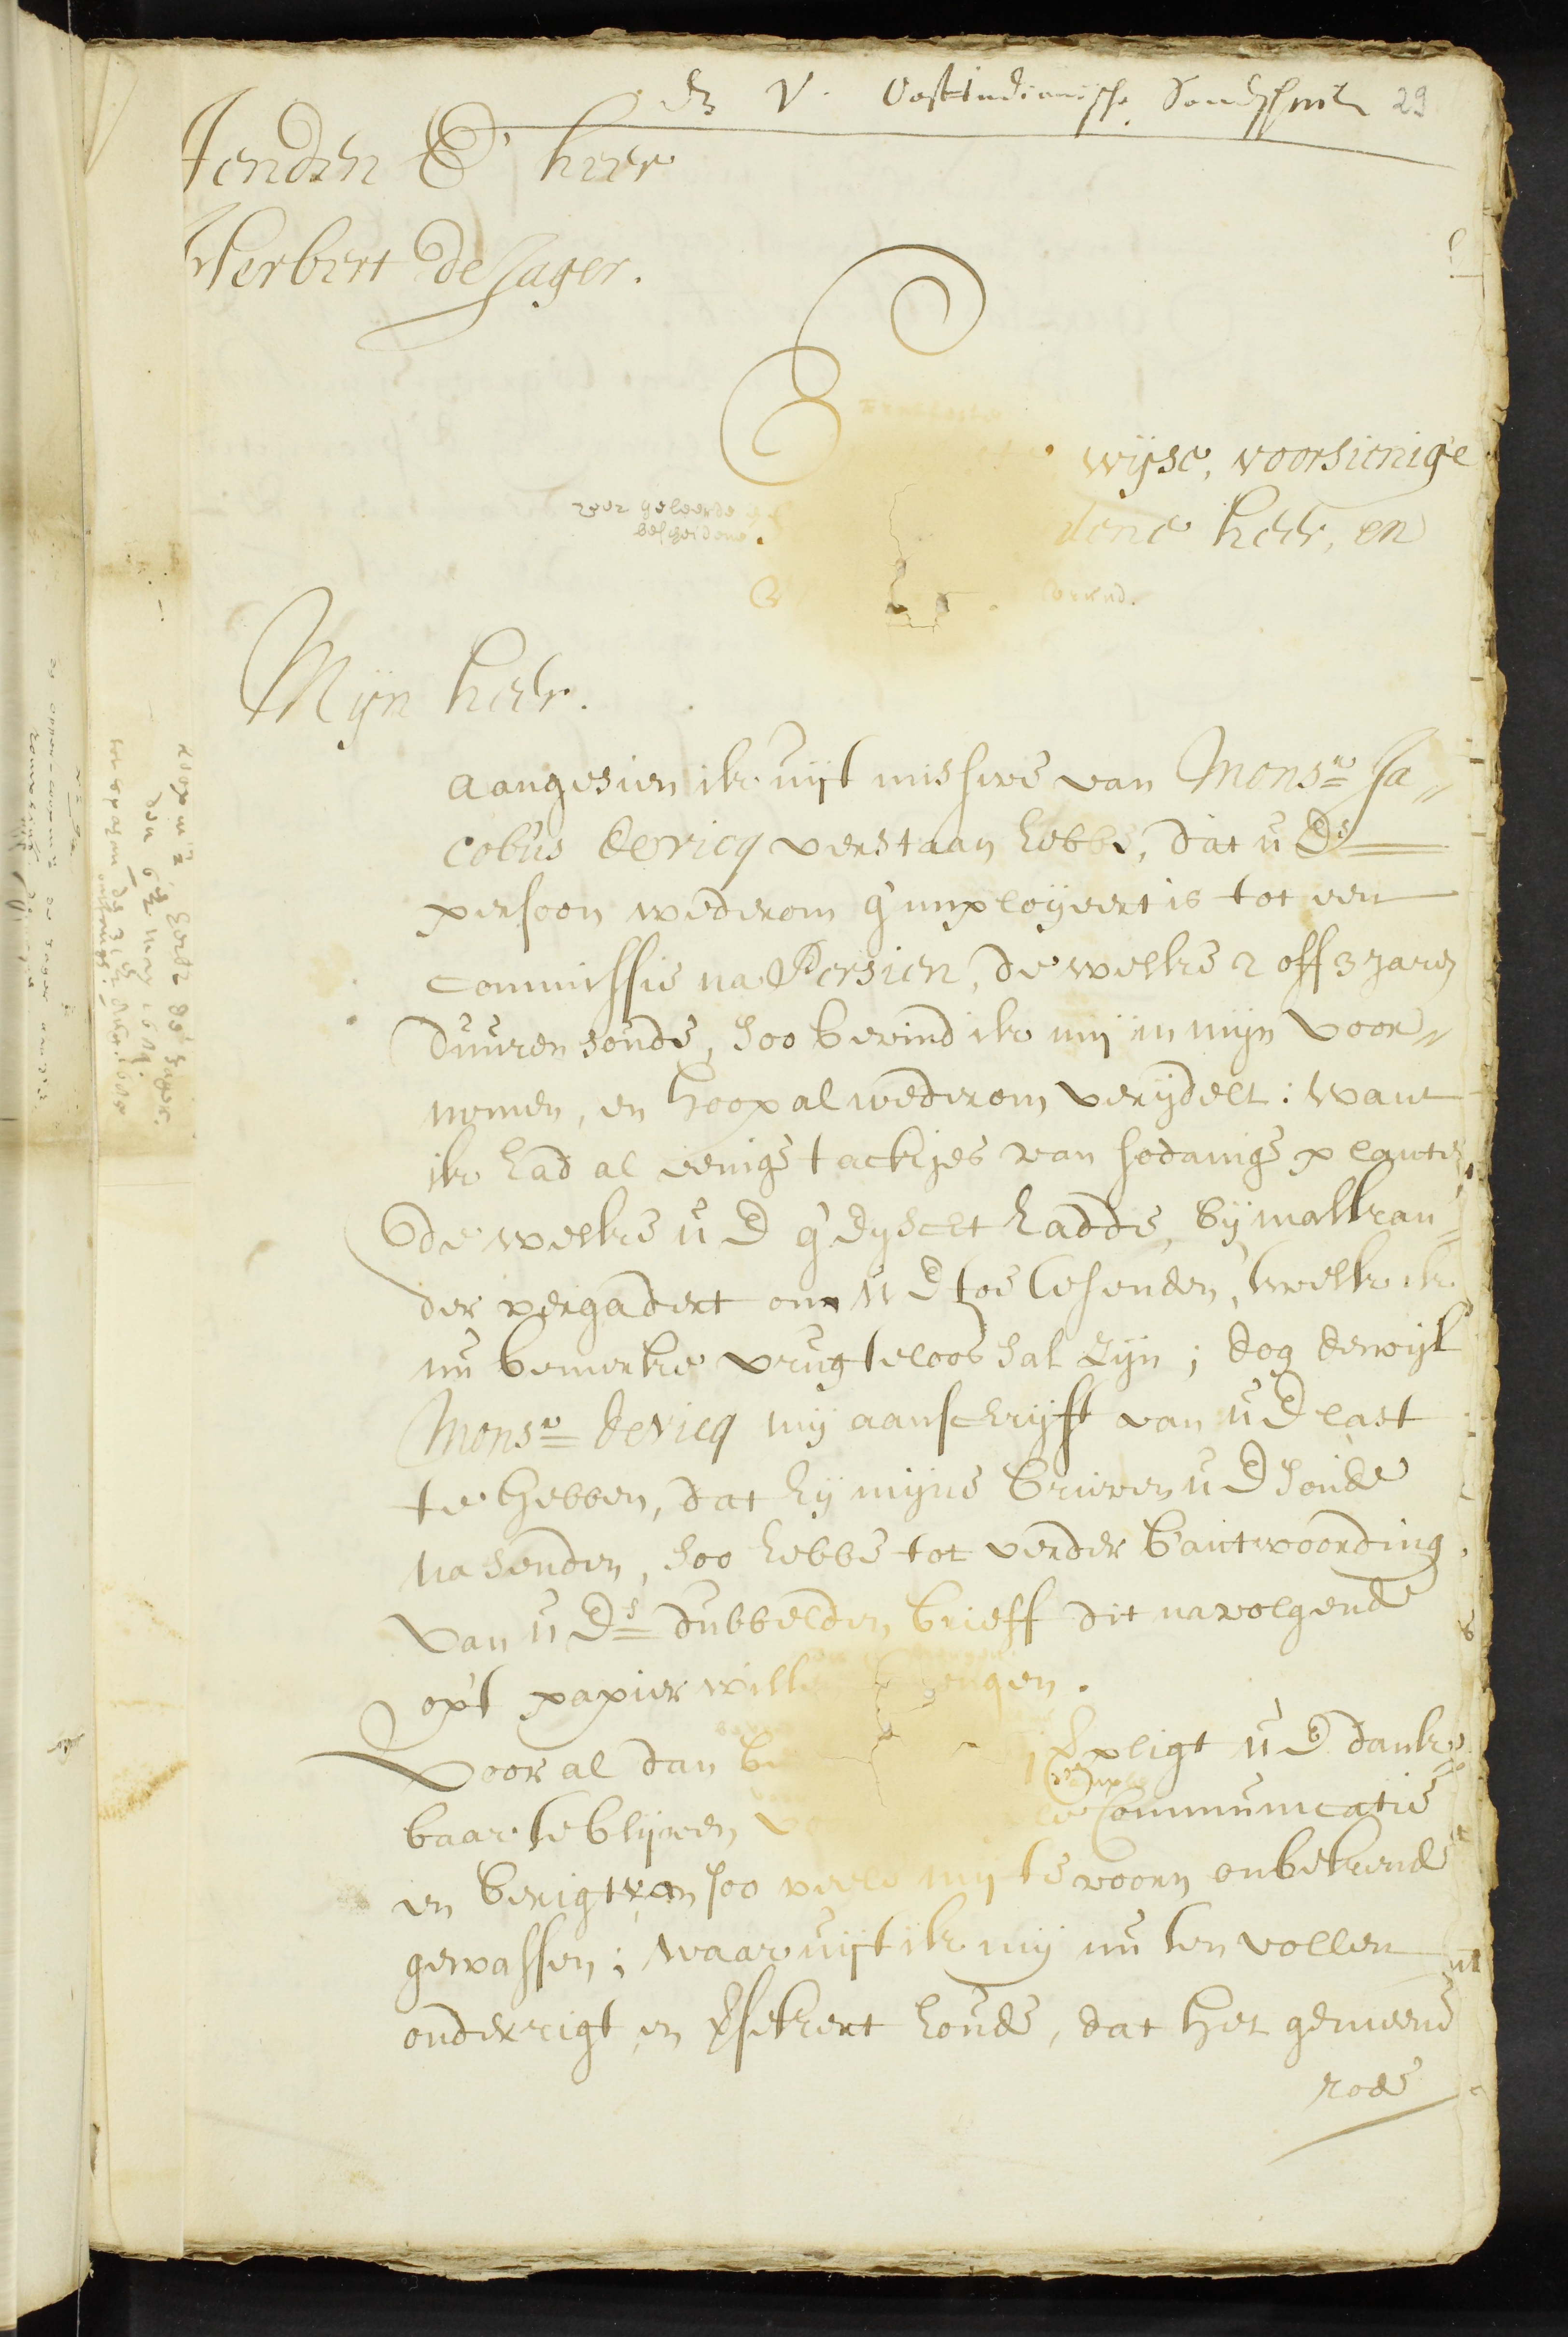 V. Oostindianische Sendschrift 29
Aenden E. heer
Herbert de Jager.
wijse, voorsienige
zeer geleerde
bescheidene.
dene heer, en
vriend.
Mijn heer.
aangesien ik uijt missive van Monsr. Ja„
cobus de vicq verstaan hebbe, dat u Ds
persoon wederom g'imploijeert is tot een
commissie na Persien, de welke 2 off 3 jaren
duuren soude, soo bevind ik mij in mijn voor„
nemen, en hoop al wederom verijdelt: want
ik had al eenige tackjes van sodanige plante
de welke u D g'eyscht hadde, bij malkan„
der vergadert om u D toe te senden, twelk ik
nu bemerke vrugteloos sal zijn; dog dewijl
Monsr. de vicq mij aanschrijft van u D last
te hebben, dat hij mijne brieven u D soude
na senden, soo hebbe tot verder b'antwoording
van u Ds dubbelden brieff dit navolgende
op't papier wille brengen.
Voor al dan verpligt u D dank„
baar te blijven communicatie
en berigt van soo veele mij te voorn onbekende
gewassen; waar uijt ik mij nu ten vollen
onderrigt en versekert houde, dat het gemeene
rode